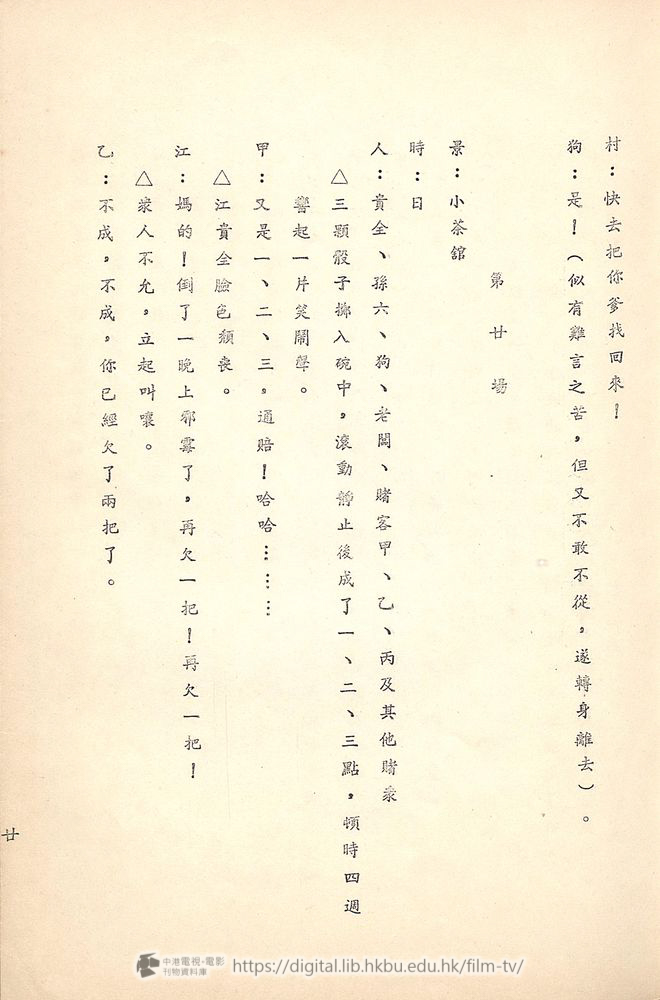 村：快去把你爹找回來！
狗：是！（似有難言之苦，但又不敢不從，遂轉身離去）。
第廿場
景：小茶舘
時：日
人：貴全、孫六、狗、老闆、賭客甲、乙、丙及其他賭衆
△三顆骰子擲入碗中，滾動靜止後成了一、二、三點，頓時四週
響起一片笑鬧聲。
甲：又是一、二、三，通賠！哈哈………
△江貴全臉色頹喪。
江：媽的！倒了一晚上邪霉了，再欠一把！再欠一把！
△衆人不允，立起叫嚷。
乙：不成，不成，你已經欠了兩把了。
廿
中港電視·電影
刊物資料庫
https://digital.lib.hkbu.edu.hk/film-tv/